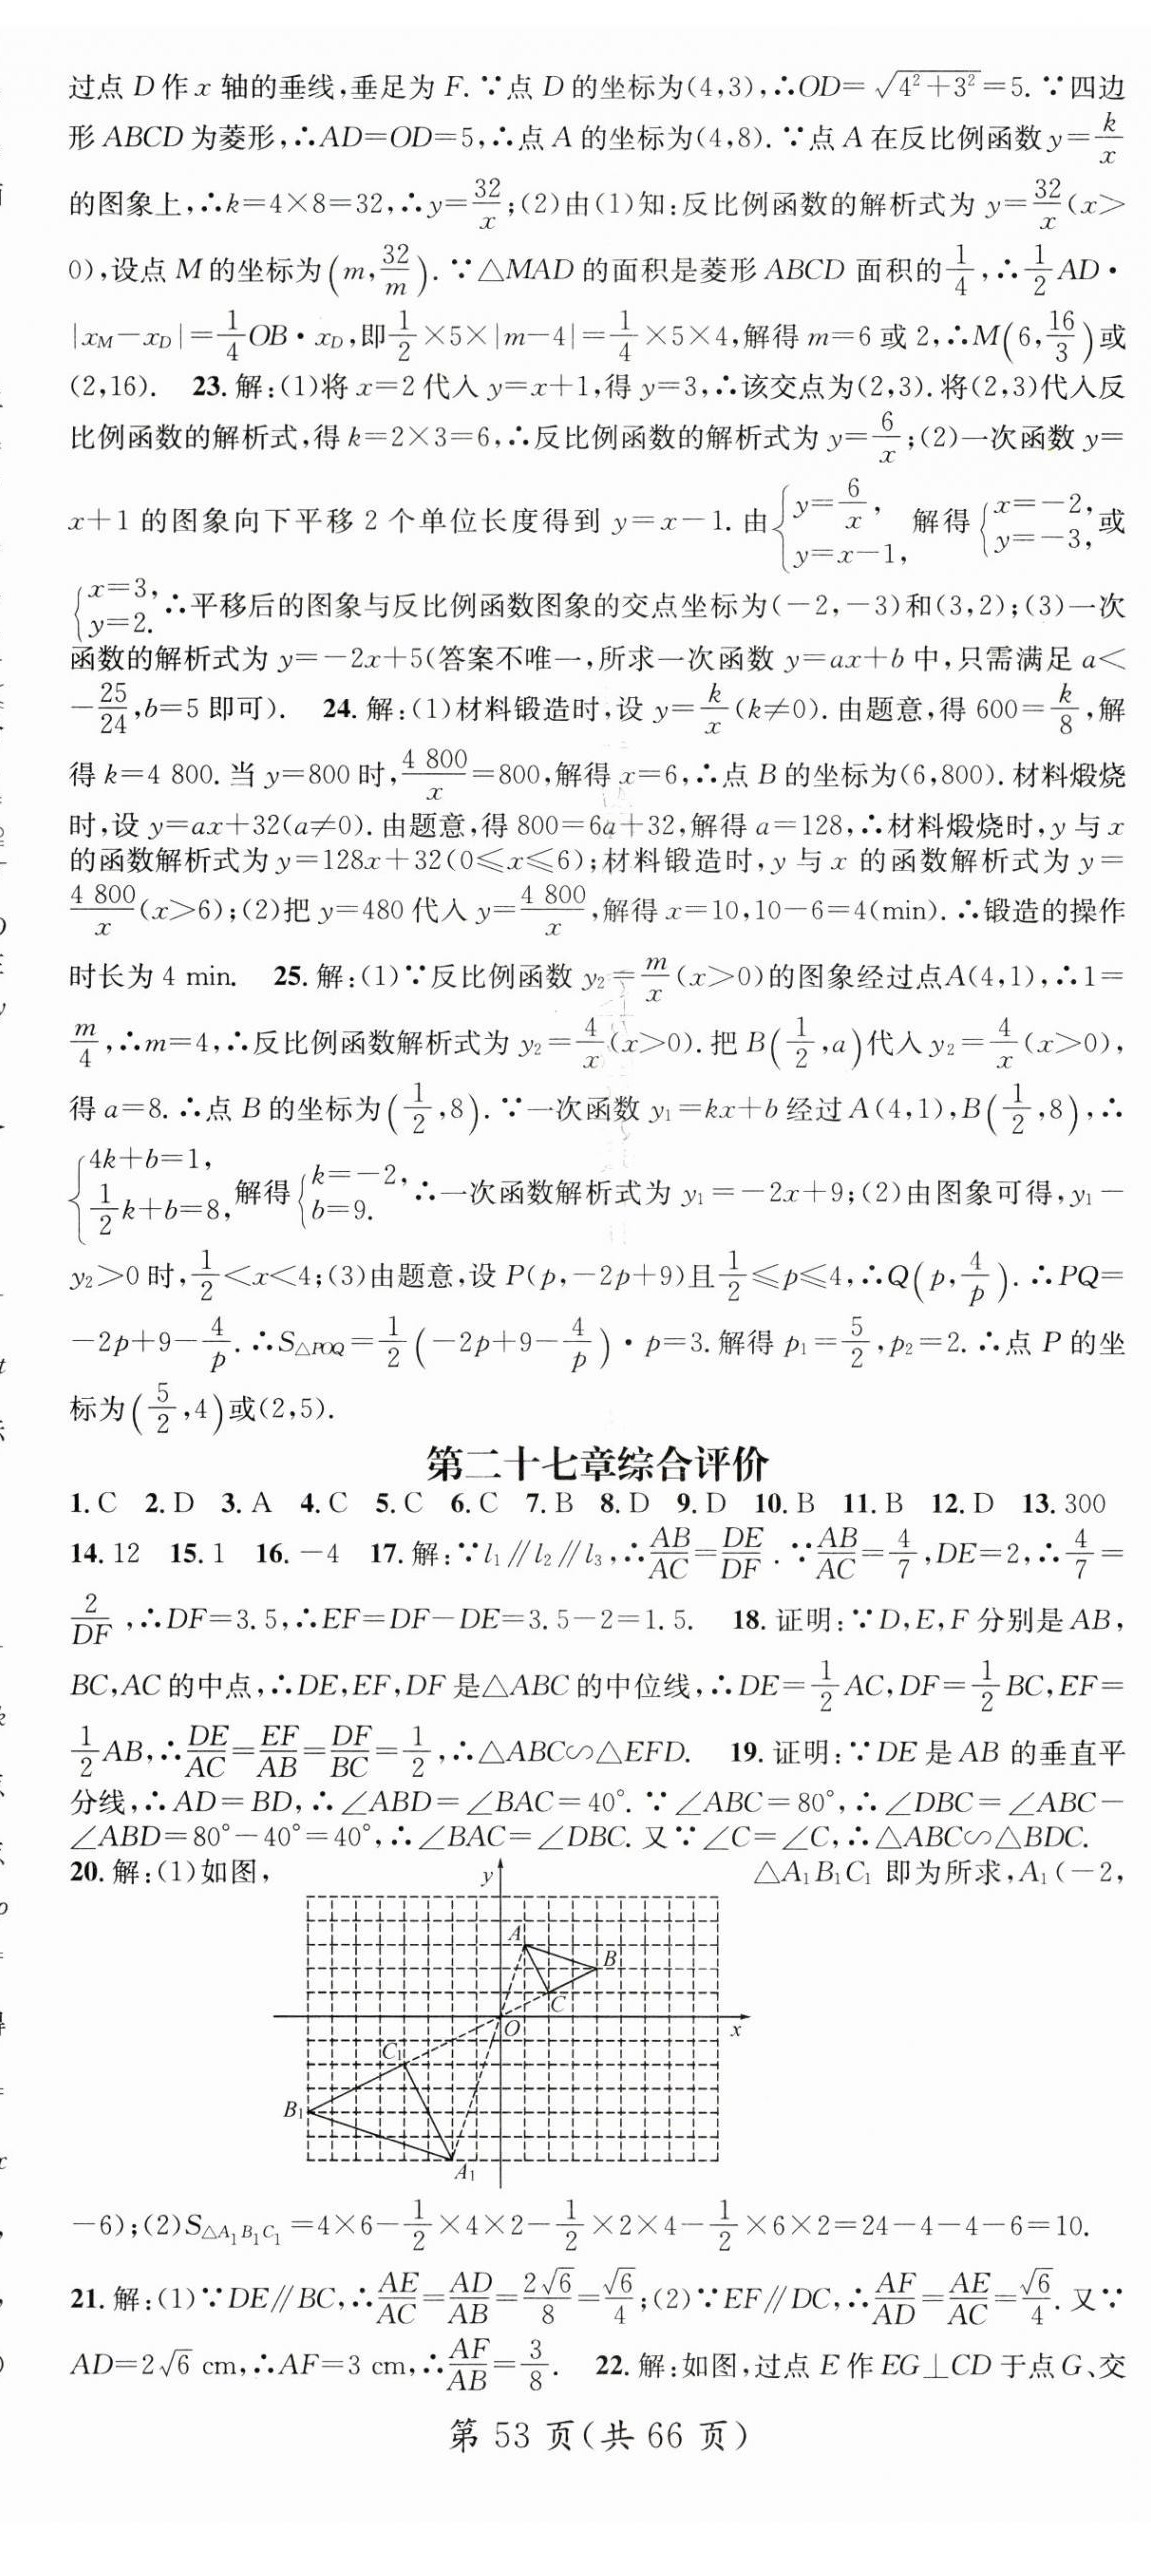 过点 D 作 x 轴的垂线,垂足为 F. ∵点 D 的坐标为(4,3),∴OD=√(4²+3²)=5. ∵四边
形 ABCD 为菱形,∴AD=OD=5,∴点 A 的坐标为(4,8). ∵点 A 在反比例函数 y=k/x
的图象上,∴k=4×8=32,∴y=32/x;(2)由(1)知:反比例函数的解析式为 y=32/x(x>
0),设点 M 的坐标为(m,32/m). ∵△MAD 的面积是菱形 ABCD 面积的1/4,∴1/2AD·
|x_M−x_D|=1/4OB·x_D,即1/2×5×|m−4|=1/4×5×4,解得 m=6 或 2,∴M(6,16/3)或
(2,16). 23.解:(1)将 x=2 代入 y=x+1,得 y=3,∴该交点为(2,3).将(2,3)代入反
比例函数的解析式,得 k=2×3=6,∴反比例函数的解析式为 y=6/x;(2)一次函数 y=
x+1 的图象向下平移 2 个单位长度得到 y=x−1. 由{y=6/x, y=x−1, 解得{x=−2, y=−3,或
{x=3, y=2. ∴平移后的图象与反比例函数图象的交点坐标为(−2,−3)和(3,2);(3)一次
函数的解析式为 y=−2x+5(答案不唯一,所求一次函数 y=ax+b 中,只需满足 a<
−25/24,b=5 即可). 24.解:(1)材料锻造时,设 y=k/x(k≠0).由题意,得 600=k/8,解
得 k=4 800. 当 y=800 时,4 800/x=800,解得 x=6,∴点 B 的坐标为(6,800).材料煅烧
时,设 y=ax+32(a≠0).由题意,得 800=6a+32,解得 a=128,∴材料煅烧时,y 与 x
的函数解析式为 y=128x+32(0≤x≤6);材料锻造时,y 与 x 的函数解析式为 y=
4 800/x(x>6);(2)把 y=480 代入 y=4 800/x,解得 x=10,10−6=4(min).∴锻造的操作
时长为 4 min. 25.解:(1)∵反比例函数 y₂=m/x(x>0)的图象经过点A(4,1),∴1=
m/4,∴m=4,∴反比例函数解析式为 y₂=4/x(x>0).把 B(1/2,a)代入 y₂=4/x(x>0),
得 a=8.∴点 B 的坐标为(1/2,8).∵一次函数 y₁=kx+b 经过 A(4,1),B(1/2,8),∴
{4k+b=1, 1/2k+b=8, 解得{k=−2, b=9. ∴一次函数解析式为 y₁=−2x+9;(2)由图象可得,y₁−
y₂>0 时,1/2<x<4;(3)由题意,设 P(p,−2p+9)且1/2≤p≤4,∴Q(p,4/p).∴PQ=
−2p+9−4/p.∴S△POQ=1/2(−2p+9−4/p)·p=3.解得 p₁=5/2,p₂=2.∴点 P 的坐
标为(5/2,4)或(2,5).
第二十七章综合评价
1.C 2.D 3.A 4.C 5.C 6.C 7.B 8.D 9.D 10.B 11.B 12.D 13.300
14.12 15.1 16.−4 17.解:∵l₁∥l₂∥l₃,∴AB/AC=DE/DF.∵AB/AC=4/7,DE=2,∴4/7=
2/DF,∴DF=3.5,∴EF=DF−DE=3.5−2=1.5. 18.证明:∵D,E,F 分别是 AB,
BC,AC 的中点,∴DE,EF,DF 是△ABC 的中位线,∴DE=1/2AC,DF=1/2BC,EF=
1/2AB,∴DE/AC=EF/AB=DF/BC=1/2,∴△ABC∽△EFD. 19.证明:∵DE 是 AB 的垂直平
分线,∴AD=BD,∴∠ABD=∠BAC=40°.∵∠ABC=80°,∴∠DBC=∠ABC−
∠ABD=80°−40°=40°,∴∠BAC=∠DBC.又∵∠C=∠C,∴△ABC∽△BDC.
20.解:(1)如图, △A₁B₁C₁ 即为所求,A₁(−2,
y
A
B
C
O
x
C₁
B₁
A₁
−6);(2)S△A₁B₁C₁=4×6−1/2×4×2−1/2×2×4−1/2×6×2=24−4−4−6=10.
21.解:(1)∵DE∥BC,∴AE/AC=AD/AB=2√6/8=√6/4;(2)∵EF∥DC,∴AF/AD=AE/AC=√6/4.又∵
AD=2√6 cm,∴AF=3 cm,∴AF/AB=3/8. 22.解:如图,过点 E 作 EG⊥CD 于点 G、交
第 53 页(共 66 页)